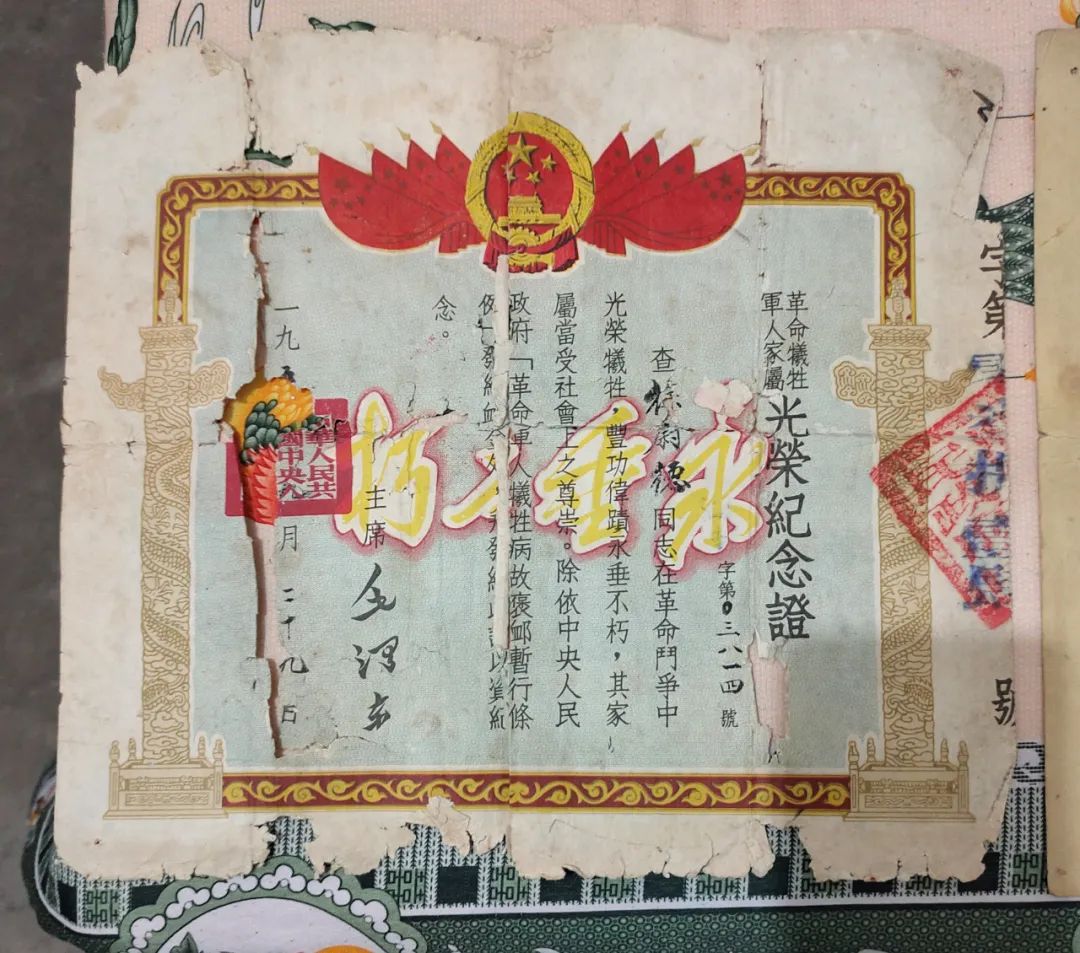 革命犧牲
軍人家屬
光榮紀念證
字第0三八一四號
查 德同志在革命鬥爭中
光榮犧牲，豐功偉蹟永垂不朽，其家
屬當受社會上之尊崇。除依中央人民
政府「革命軍人犧牲病故褒卹暫行條
例」發給卹金外，並發給此證以資紀
念。
主席 毛澤东
一九 月二十九日
永垂不朽
字第 號